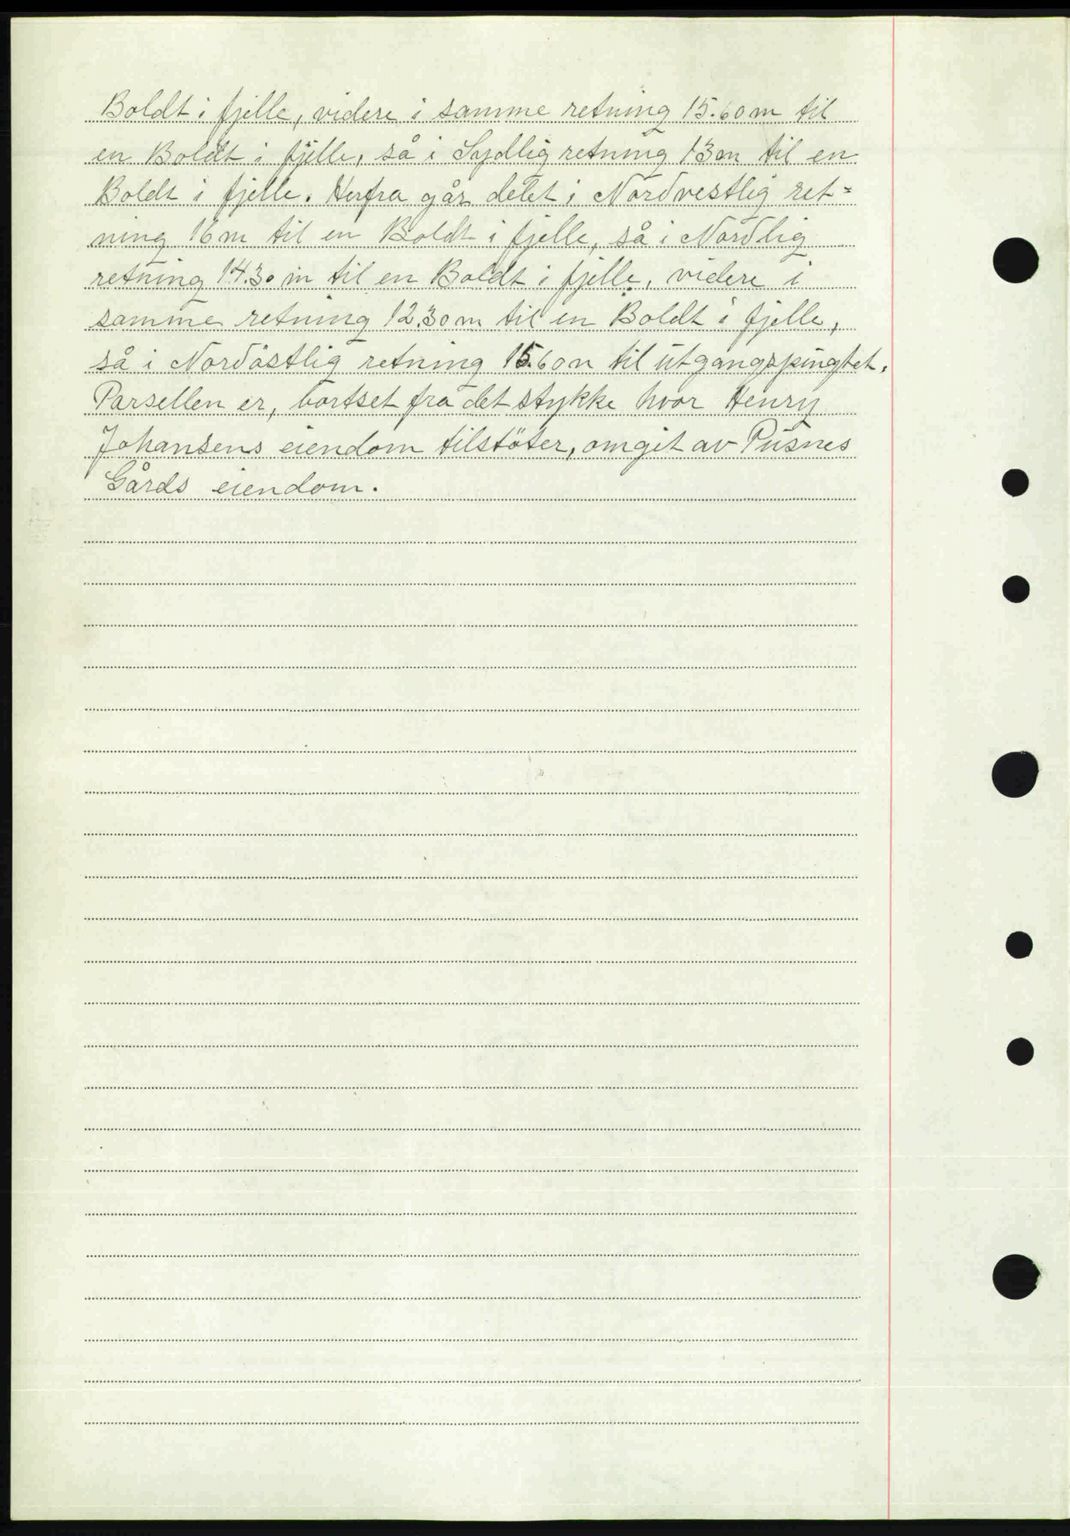 Boldt i fjelle, videre i samme retning 15.60 m til
en Boldt i fjelle, så i Sydlig retning 13 m til en
Boldt i fjelle. Herfra går delet i Nordvestlig ret=
ning 16 m til en Boldt i fjelle, så i Nordlig
retning 14.30 m til en Boldt i fjelle, videre i
samme retning 12.30 m til en Boldt i fjelle,
så i Nordöstlig retning 15.60 m til utgangspungtet.
Parsellen er, bortset fra det stykke hvor Henry
Johansens eiendom tilstöter, omgit av Pusnes
Gårds eiendom.